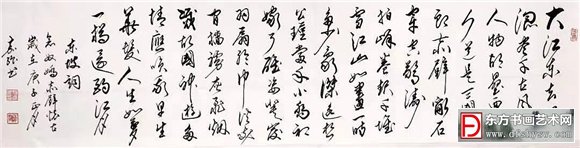 大江东去
浪淘尽千古风流
人物故垒西边
人道是三国周
郎赤壁乱石
穿空惊涛
拍岸卷起千堆
雪江山如画一时
多少豪杰遥想
公瑾当年小乔初
嫁了雄姿英发
羽扇纶巾谈笑
间樯橹灰飞烟
灭故国神游多
情应笑我早生
华发人生如梦
一樽还酹江月
东坡词
念奴娇赤壁怀古
岁在庚子正月
书
东方书画艺术网
www.dfshysw.com